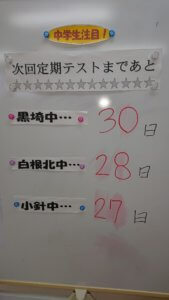 中学生注目！
次回定期テストまであと
☆☆☆☆☆☆☆☆☆☆☆☆
黒埼中… 30日
白根北中… 28日
小針中… 27日